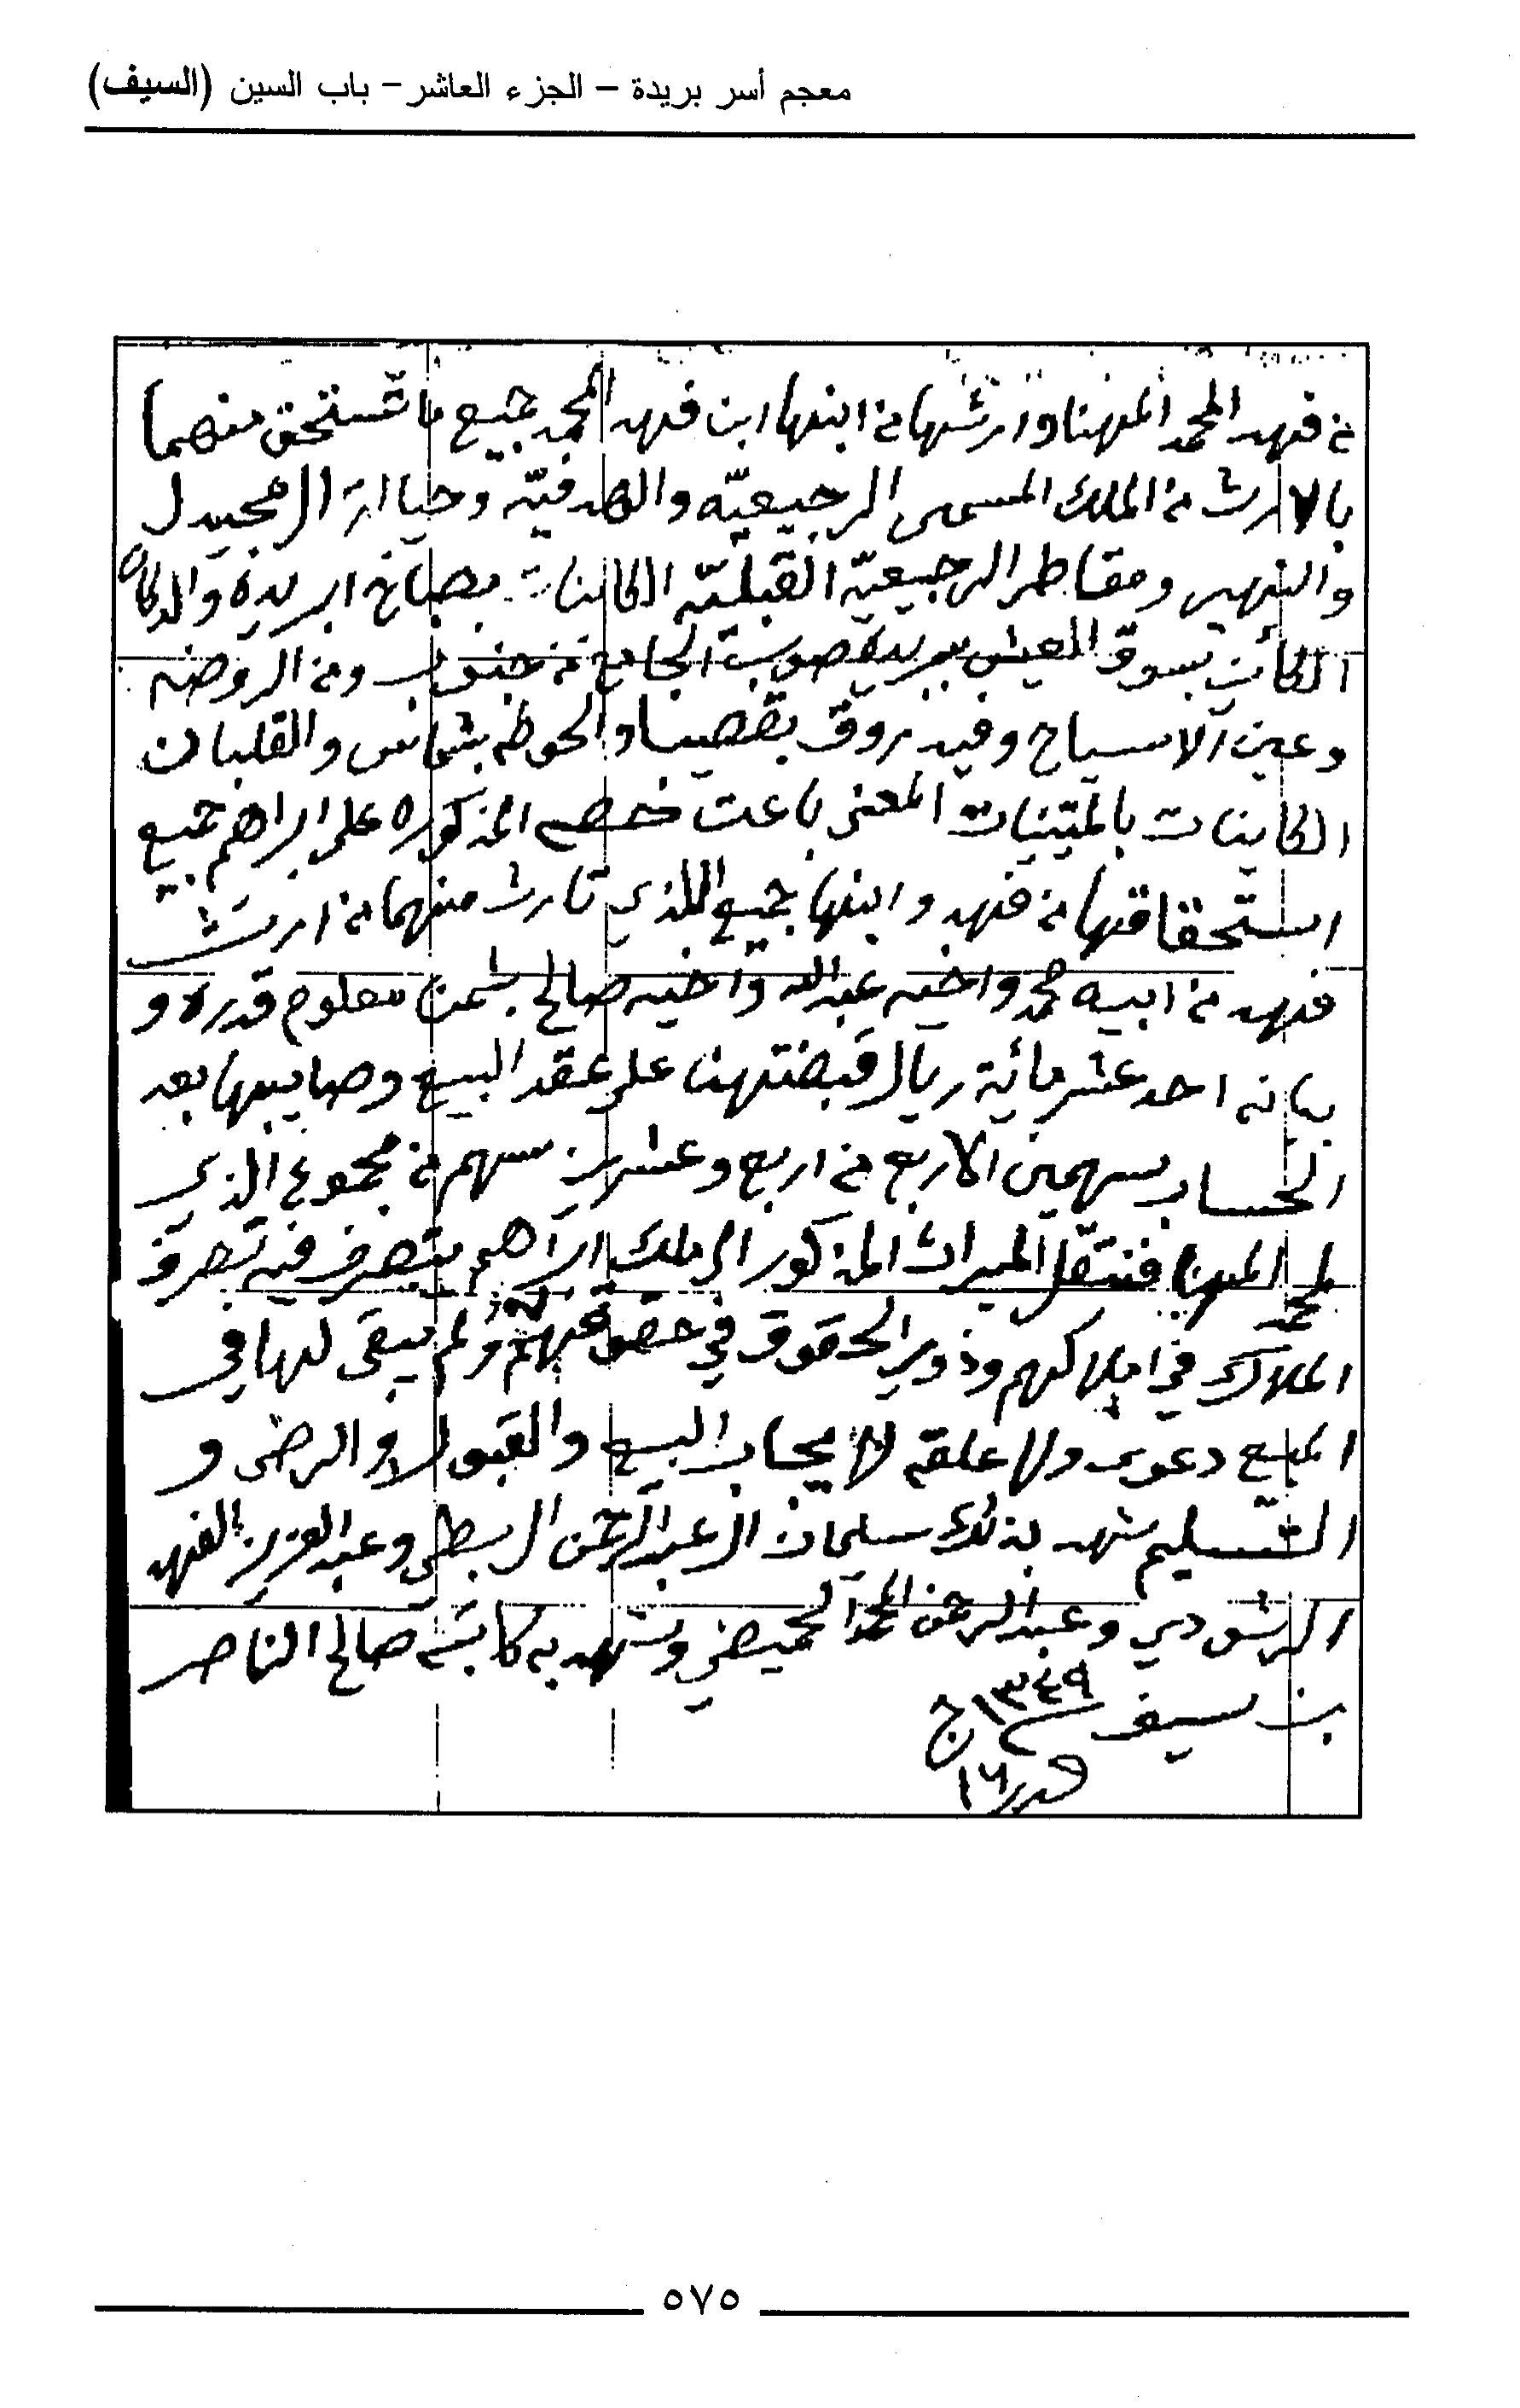 معجم أسر بريدة – الجزء العاشر – باب السين (السيف)
من فهد المحمد المهنا وارثها من ابنها ابن فهد المحمد جميع ما تستحق منهما
بالارث من الملك المسمى الرجيعيّه والصدفيّه وحيالة الرمجيدل
والنهير ومقاطر الرجيعيّة القبليّه الكاينات بصباخ ابريدة والدكان
الكائن بسوق المعيش ببريدة صوب الجامع من جنوب ومن الروضه
وعين الاسياح وفيد روق بقصيبا والحوطه بشماس والقلبان
الكاينات بالمتينيات المعنى باعت خصه المذكوره على ابراهيم جميع
استحقاقها من فهد وابنها جميع اللذي تارث منهما من ارث
فهد من ابيه محمد واخيه عبدالله واخيه صالح بثمن معلوم قدره و
بيانه احد عشر مائة ريال قبضتهن على عقد البيع وصايبها بعد
الحساب سهمين الاربع من اربع وعشرين سهم من مجموع الذي
لمحمد المهنا فنتقل الميراث المذكور الى ملك ابراهيم يتصرف فيه تصرف
الملاك في املاكهم وذوي الحقوق في حقوقهم ولم يبقى لها في
المبيع دعوى ولا علقه لايجاب البيع والقبول والرضى و
التسليم شهد بذلك سليمان العبدالرحمن الربطي وعبدالعزيز الفهد
الرشودي وعبدالرحمن المحمد الحميضي وشهد به كاتبه صالح الناصر
بن سيف ١٣٤٩ ج
١٦
٥٧٥